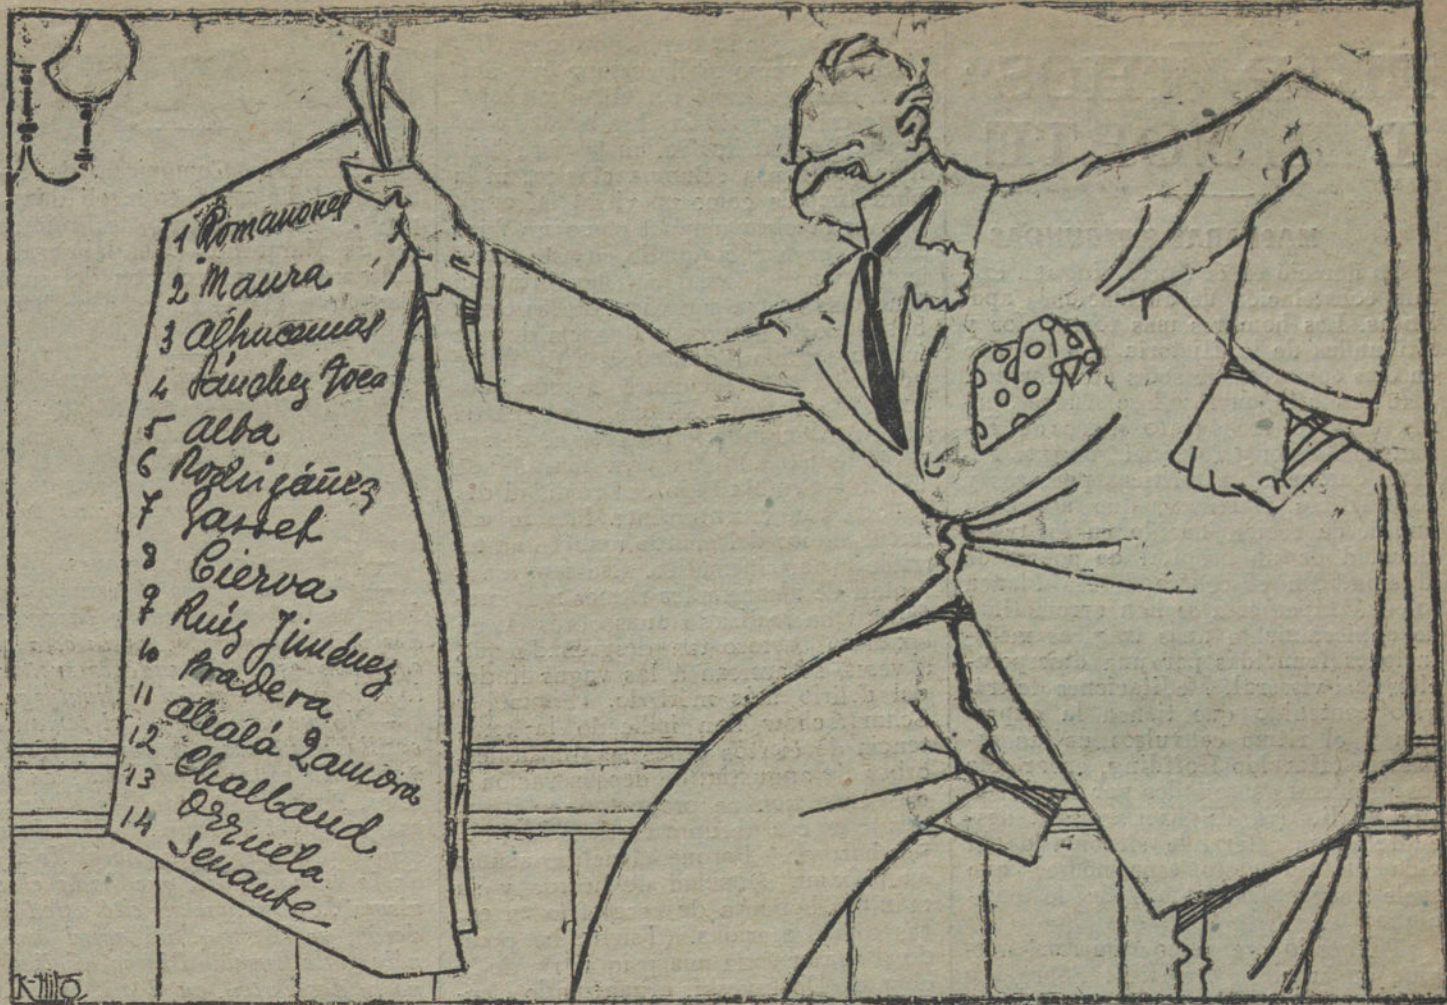 1 Romanones
2 Maura
3 Alhucemas
4 Sánchez Toca
5 Alba
6 Rodrigáñez
7 Gasset
8 Cierva
9 Ruiz Jiménez
10 Pradera
11 Alcalá Zamora
12 Chalbaud
13 Orruela
14 Senante
K-HITO